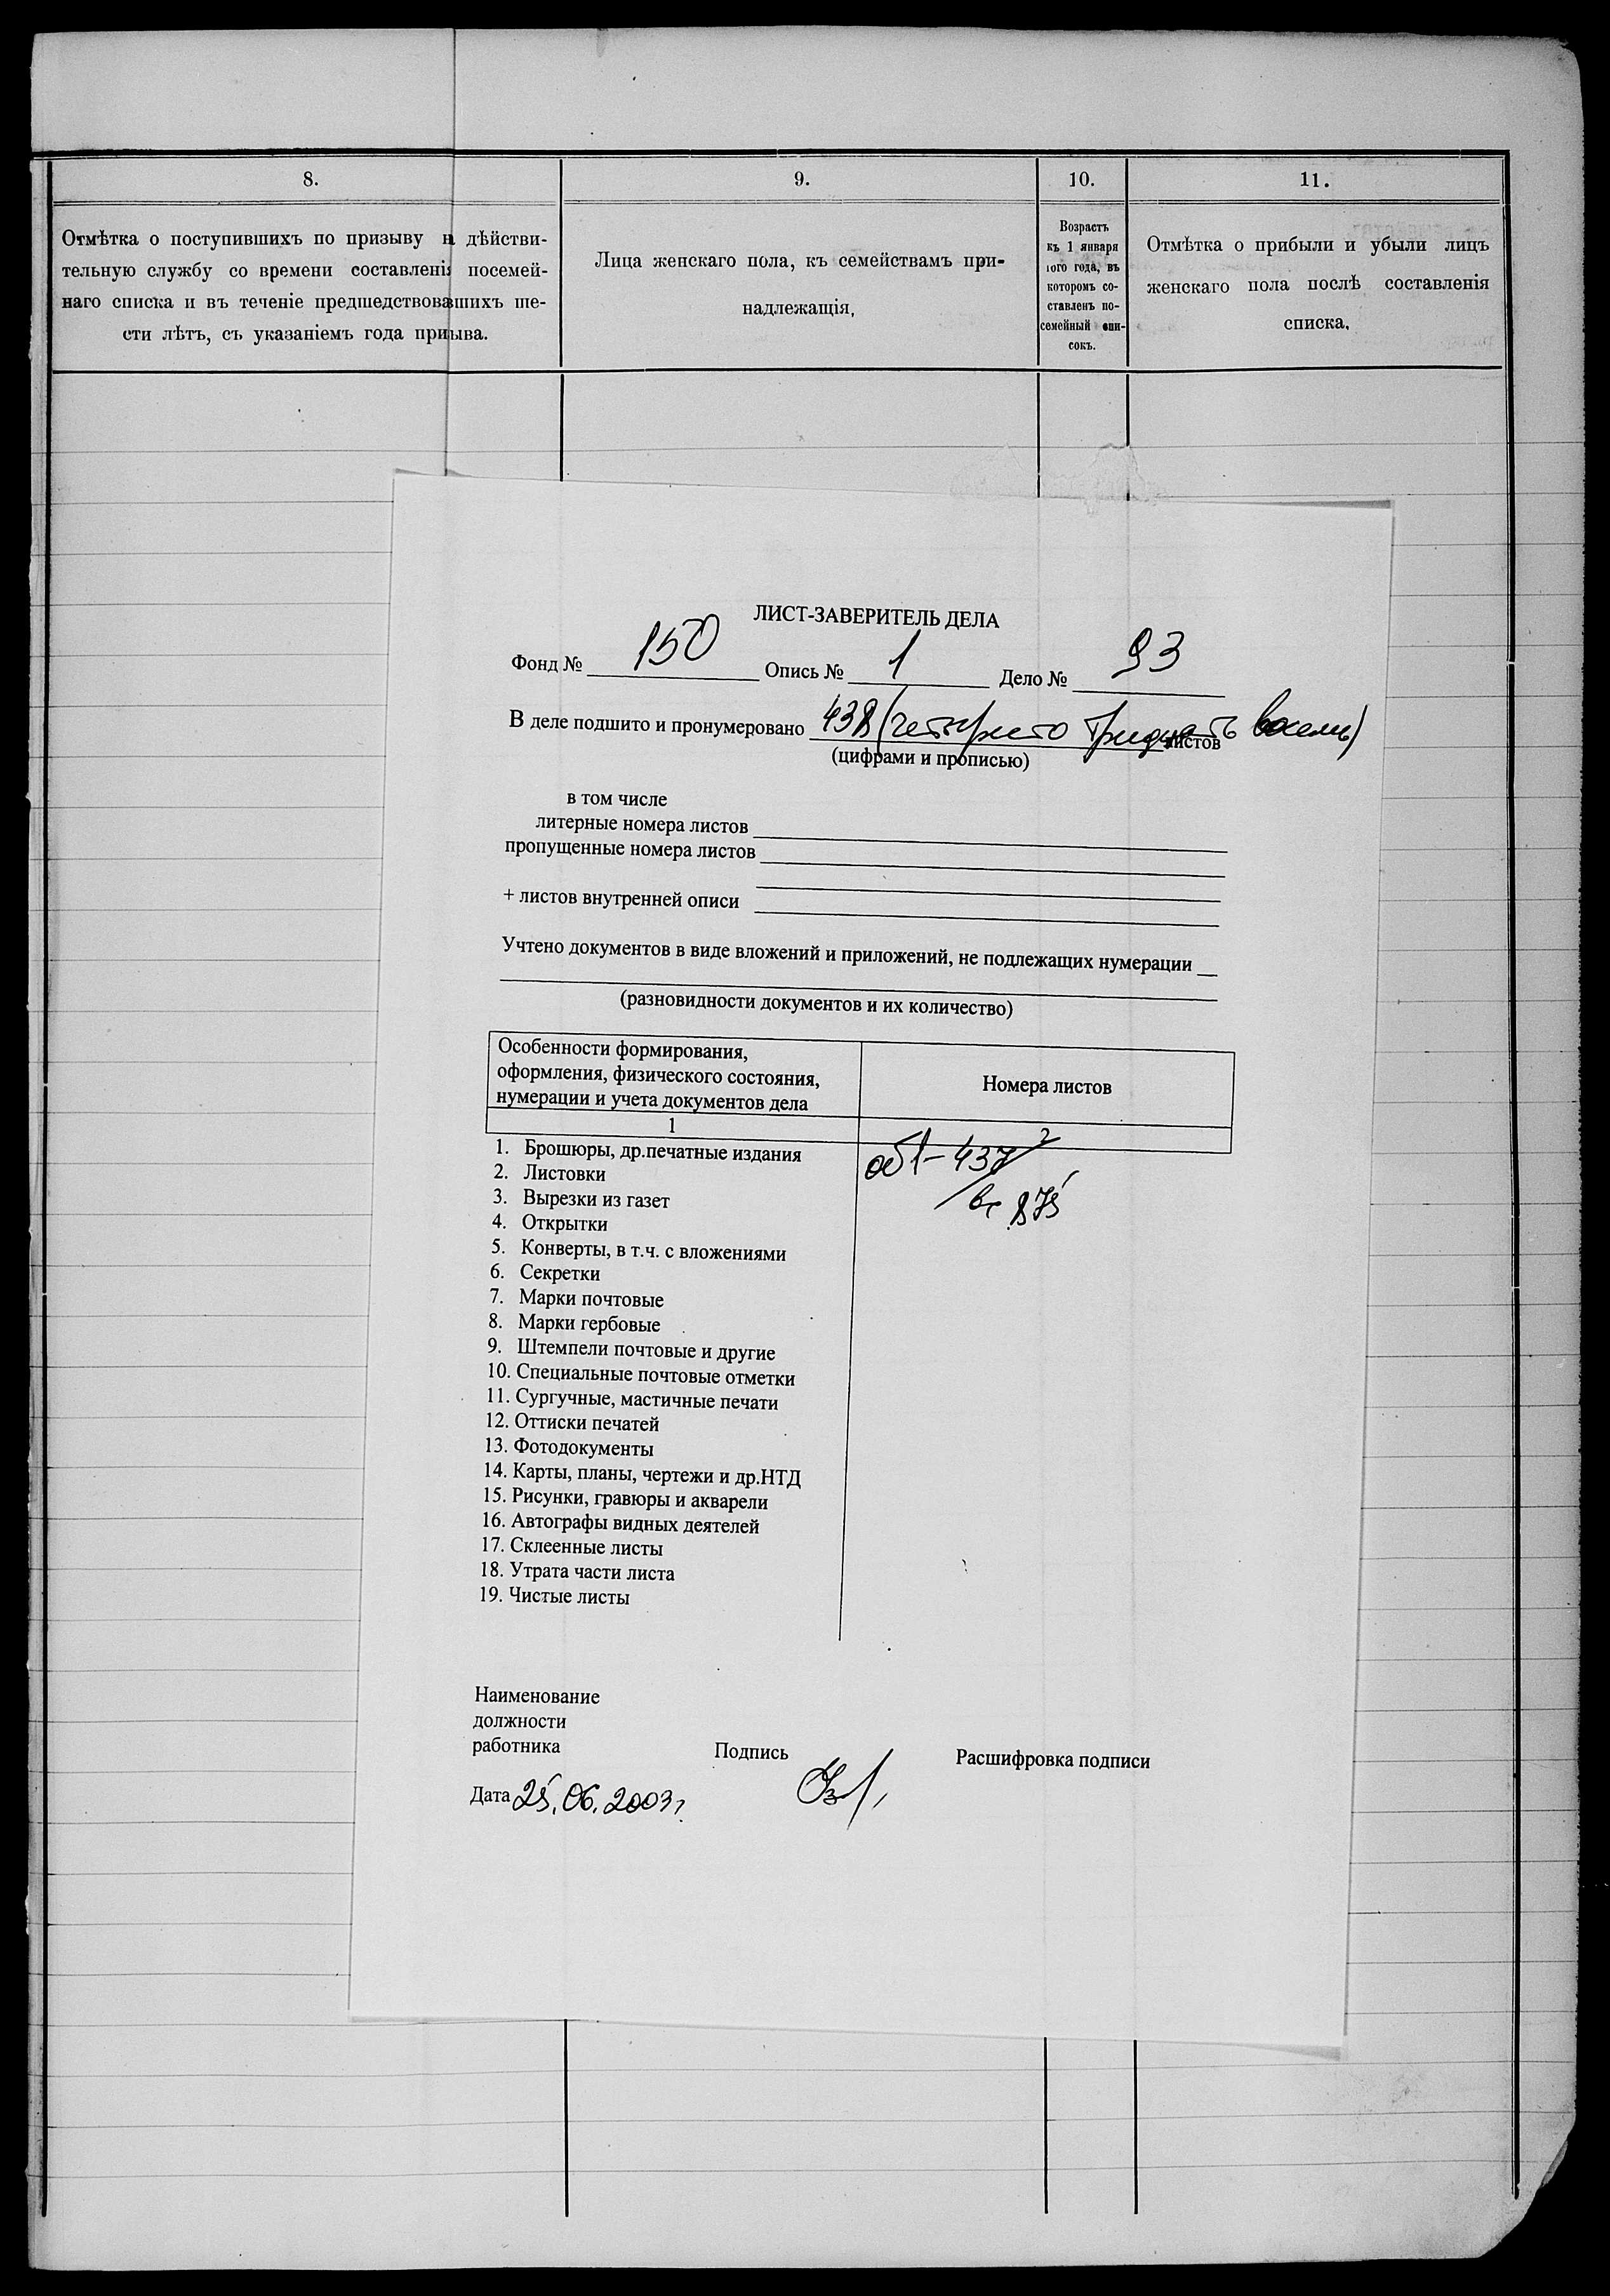 8.
9.
10.
11.
Отмѣтка о поступившихъ по призыву н дѣйстви-
тельную службу со времени составлені посемей-
наго списка и въ теченіе предшедствовавшихъ ше-
сти лѣтъ, съ указаніемъ года призыва.
Лица женскаго пола, къ семействамъ при-
надлежащія.
Возрастъ
къ 1 января
того года, въ
которомъ со-
ставленъ по-
семейный спи-
сокъ.
Отмѣтка о прибыли и убыли лицъ
женскаго пола послѣ составленія
списка.
ЛИСТ-ЗАВЕРИТЕЛЬ ДЕЛА
Фонд № 150 Опись № 1 Дело № 93
В деле подшито и пронумеровано 438 (четыреста тридцать восемь) листов
(цифрами и прописью)
в том числе
литерные номера листов
пропущенные номера листов
+ листов внутренней описи
Учтено документов в виде вложений и приложений, не подлежащих нумерации
(разновидности документов и их количество)
Особенности формирования,
оформления, физического состояния,
нумерации и учета документов дела
Номера листов
1
2
1. Брошюры, др.печатные издания
об1-437
2. Листовки
875
3. Вырезки из газет
4. Открытки
5. Конверты, в т.ч. с вложениями
6. Секретки
7. Марки почтовые
8. Марки гербовые
9. Штемпели почтовые и другие
10. Специальные почтовые отметки
11. Сургучные, мастичные печати
12. Оттиски печатей
13. Фотодокументы
14. Карты, планы, чертежи и др.НТД
15. Рисунки, гравюры и акварели
16. Автографы видных деятелей
17. Склеенные листы
18. Утрата части листа
19. Чистые листы
Наименование
должности
работника
Подпись
Расшифровка подписи
Дата 25.06.2003г.